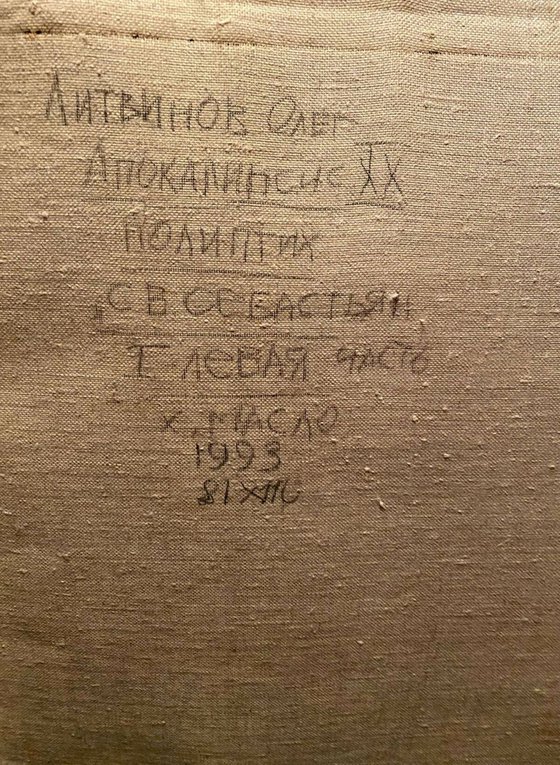 Литвинов Олег
Апокалипсис XX
полиптих
„Св. Себастьян
I-левая часть
х. масло
1993
81х116